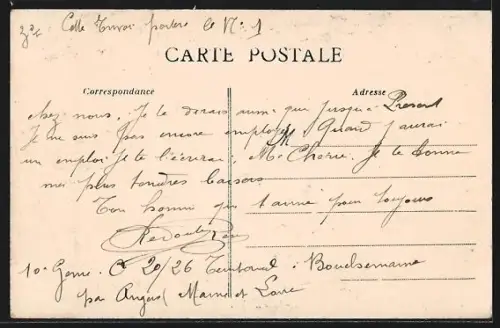 Cette Envoi portera le N: 1
CARTE POSTALE
Correspondance Adresse
chez nous. Je te dirais aussi que jusqua Present
Je ne suis pas encore employé. Quand J aurai
un emploi Je te l'écrirai, Ma Cherie, Je te donne
mes plus tendres baisers
Ton homme qui t'aime pour toujours
10e Genie. C 20/26 Bouchemaine
par Angers (Maine et Loire